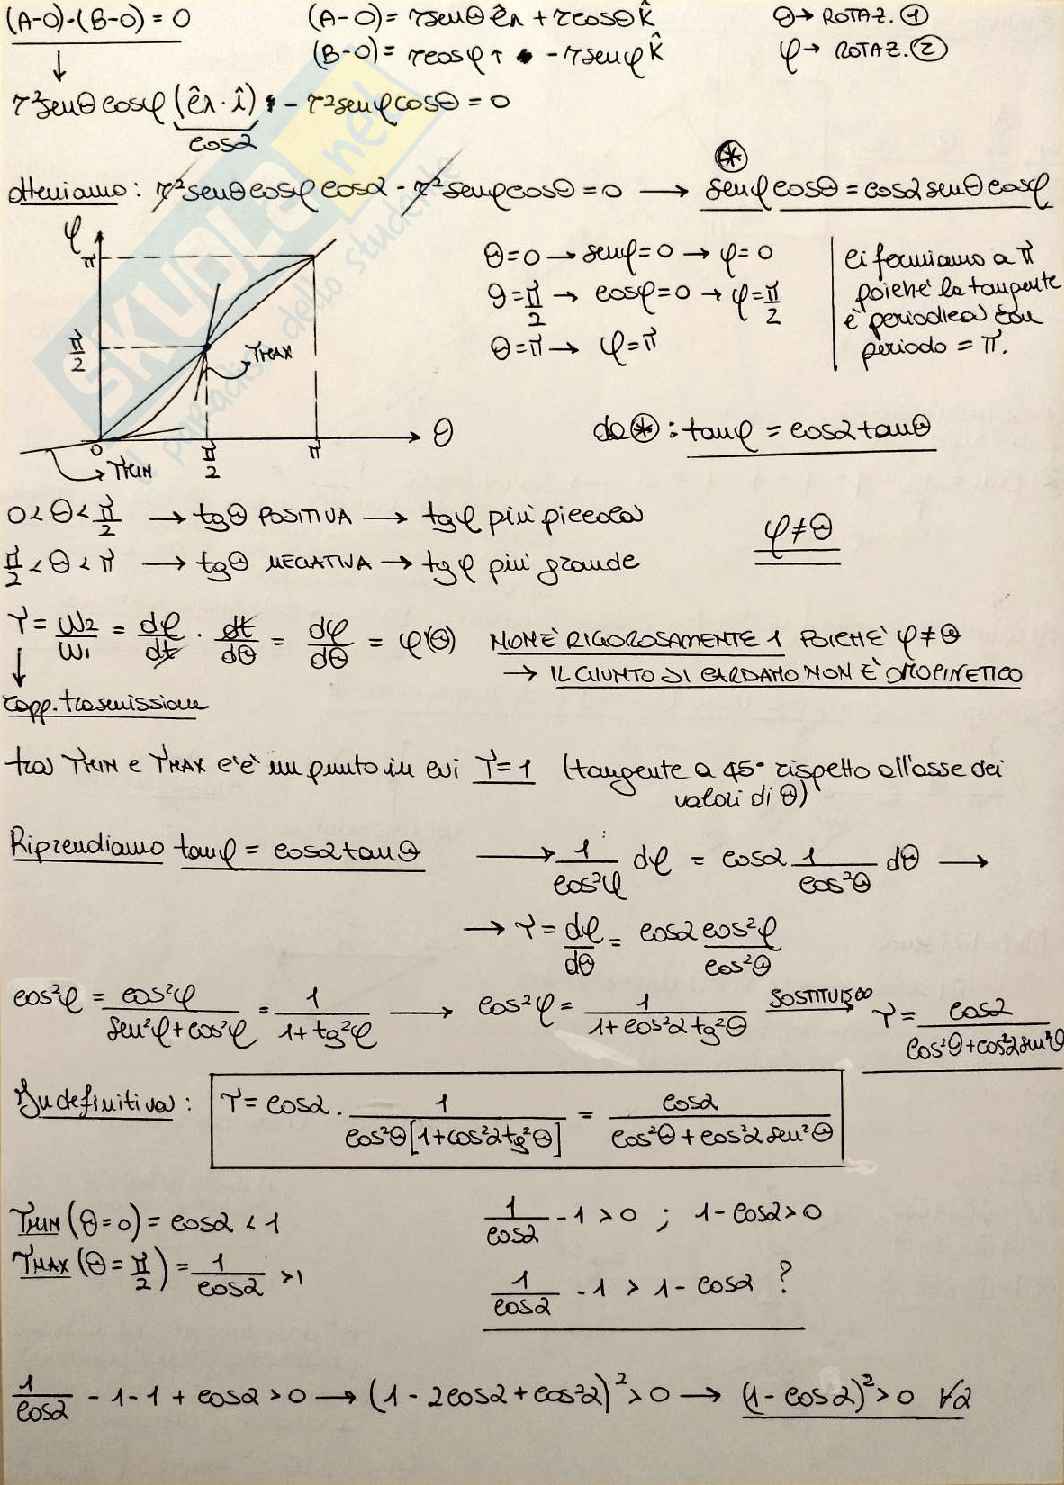 (A-O)·(B-O) = 0   (A-O) = r senθ êr + r cosθ k̂   θ → ROTAZ. ①
(B-O) = r cosφ î - r senφ k̂   φ → ROTAZ. ②
r² senθ cosφ (êr · î) - r² senφ cosθ = 0
cosα
otteniamo: r² senθ cosφ cosα - r² senφ cosθ = 0 → senφ cosθ = cosα senθ cosφ ⊛
φ
π
π/2
τMAX
0 π/2 π θ
τMIN
θ = 0 → senφ = 0 → φ = 0
θ = π/2 → cosφ = 0 → φ = π/2
θ = π → φ = π
ci fermiamo a π
poiché la tangente
è periodica con
periodo = π.
da ⊛ : tanφ = cosα tanθ
0 < θ < π/2 → tgθ POSITIVA → tgφ più piccola
π/2 < θ < π → tgθ NEGATIVA → tgφ più grande
φ ≠ θ
τ = ω2/ω1 = dφ/dt · dt/dθ = dφ/dθ = φ'(θ)   NON È RIGOROSAMENTE 1 POICHÉ φ ≠ θ
→ IL GIUNTO DI CARDANO NON È OMOCINETICO
rapp. trasmissione
tra τMIN e τMAX c'è un punto in cui τ = 1 (tangente a 45° rispetto all'asse dei
valori di θ)
Riprendiamo tanφ = cosα tanθ → 1/cos²φ dφ = cosα 1/cos²θ dθ →
→ τ = dφ/dθ = cosα cos²φ/cos²θ
cos²φ = cos²φ/(sen²φ + cos²φ) = 1/(1 + tg²φ) → cos²φ = 1/(1 + cos²α tg²θ) SOSTITUISCO → τ = cosα/(cos²θ + cos²α sen²θ)
In definitiva: τ = cosα · 1/(cos²θ[1 + cos²α tg²θ]) = cosα/(cos²θ + cos²α sen²θ)
τMIN (θ = 0) = cosα < 1   1/cosα - 1 > 0 ; 1 - cosα > 0
τMAX (θ = π/2) = 1/cosα > 1   1/cosα - 1 > 1 - cosα ?
1/cosα - 1 - 1 + cosα > 0 → (1 - 2cosα + cos²α)² > 0 → (1 - cosα)² > 0 ∀α
SKUOLA.net
il paradiso dello studente